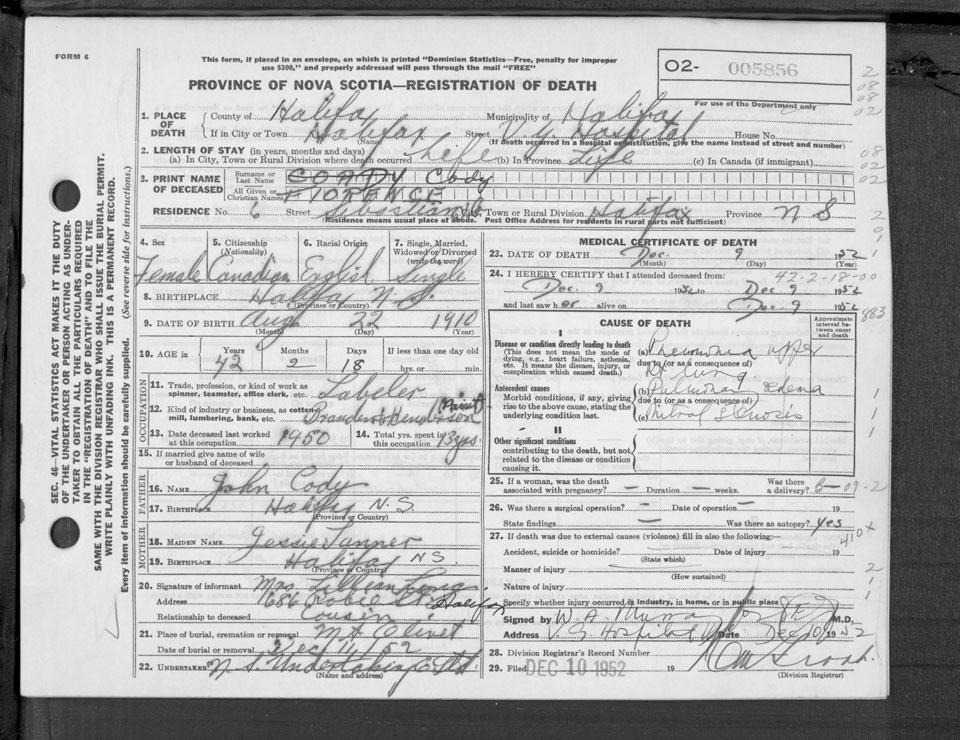 FORM 6
This form, if placed in an envelope, on which is printed "Dominion Statistics—Free, penalty for improper
use $300," and properly addressed will pass through the mail "FREE"
O2- 005856
PROVINCE OF NOVA SCOTIA—REGISTRATION OF DEATH
For use of the Department only
1. PLACE OF DEATH
County of Halifax Municipality of Halifax
If in City or Town Halifax Street V. G. Hospital House No.
(Name) (If death occurred in a hospital or institution, give the name instead of street and number)
2. LENGTH OF STAY (in years, months and days)
(a) In City, Town or Rural Division where death occurred Life (b) In Province Life (c) In Canada (if immigrant)
3. PRINT NAME OF DECEASED
Surname or Last Name Cody
All Given or Christian Names FLORENCE
RESIDENCE No. 6 Street Town or Rural Division Halifax Province N S
(Residence means usual place of abode. Post Office Address for residents in rural parts not sufficient)
4. Sex 5. Citizenship (Nationality) 6. Racial Origin 7. Single, Married, Widowed or Divorced (write the word)
Female Canadian English Single
8. BIRTHPLACE Halifax N. S.
(Province or Country)
9. DATE OF BIRTH Aug 22 1910
(Month) (Day) (Year)
10. AGE in Years Months Days If less than one day old
42 2 18 hrs. or min.
OCCUPATION
11. Trade, profession, or kind of work as spinner, teamster, office clerk, etc. Labeler
12. Kind of industry or business, as cotton-mill, lumbering, bank, etc. Brandram Henderson (Paint)
13. Date deceased last worked at this occupation 1950
14. Total yrs. spent in this occupation 13 yrs.
15. If married give name of wife or husband of deceased
FATHER
16. NAME John Cody
17. BIRTHPLACE Halifax N. S.
(Province or Country)
MOTHER
18. MAIDEN NAME Jessie Tanner
19. BIRTHPLACE Halifax N S.
(Province or Country)
20. Signature of informant Mrs. Lillian
Address 686 Robie St Halifax
Relationship to deceased Cousin
21. Place of burial, cremation or removal Mt Olivet
Date of burial or removal Dec 11/52
22. UNDERTAKER N. S. Undertaking Co Ltd
(Name and address)
MEDICAL CERTIFICATE OF DEATH
23. DATE OF DEATH Dec. 9 1952
(Month) (Day) (Year)
24. I HEREBY CERTIFY that I attended deceased from: 42-2-18-00
Dec 9 1952 to Dec 9 1952
and last saw her alive on Dec 9 1952
883
CAUSE OF DEATH
Approximate interval between onset and death
I
Disease or condition directly leading to death
(This does not mean the mode of dying, e.g., heart failure, asthenia, etc. It means the disease, injury, or complication which caused death.)
(a) Pneumonia upper
due to (or as a consequence of)
R. Lung
Antecedent causes
Morbid conditions, if any, giving rise to the above cause, stating the underlying condition last.
(b) Pulmonary Edema
due to (or as a consequence of)
(c) Mitral Stenosis
II
Other significant conditions
contributing to the death, but not related to the disease or condition causing it.
25. If a woman, was the death associated with pregnancy? — Duration — weeks. Was there a delivery?
26. Was there a surgical operation? — Date of operation — 19
State findings — Was there an autopsy? Yes
27. If death was due to external causes (violence) fill in also the following:—
410X
Accident, suicide or homicide? Date of injury 19
(State which)
Manner of injury
(How sustained)
Nature of injury
Specify whether injury occurred in industry, in home, or in public place
Signed by M.D.
Address V G Hospital Date Dec 10 1952
28. Division Registrar's Record Number
29. Filed DEC 10 1952 19
(Division Registrar)
SEC. 46—VITAL STATISTICS ACT MAKES IT THE DUTY
OF THE UNDERTAKER OR PERSON ACTING AS UNDER-
TAKER TO OBTAIN ALL THE PARTICULARS REQUIRED
IN THE "REGISTRATION OF DEATH" AND TO FILE THE
SAME WITH THE DIVISION REGISTRAR WHO SHALL ISSUE THE BURIAL PERMIT.
WRITE PLAINLY WITH UNFADING INK. THIS IS A PERMANENT RECORD.
Every item of information should be carefully supplied. (See reverse side for instructions.)